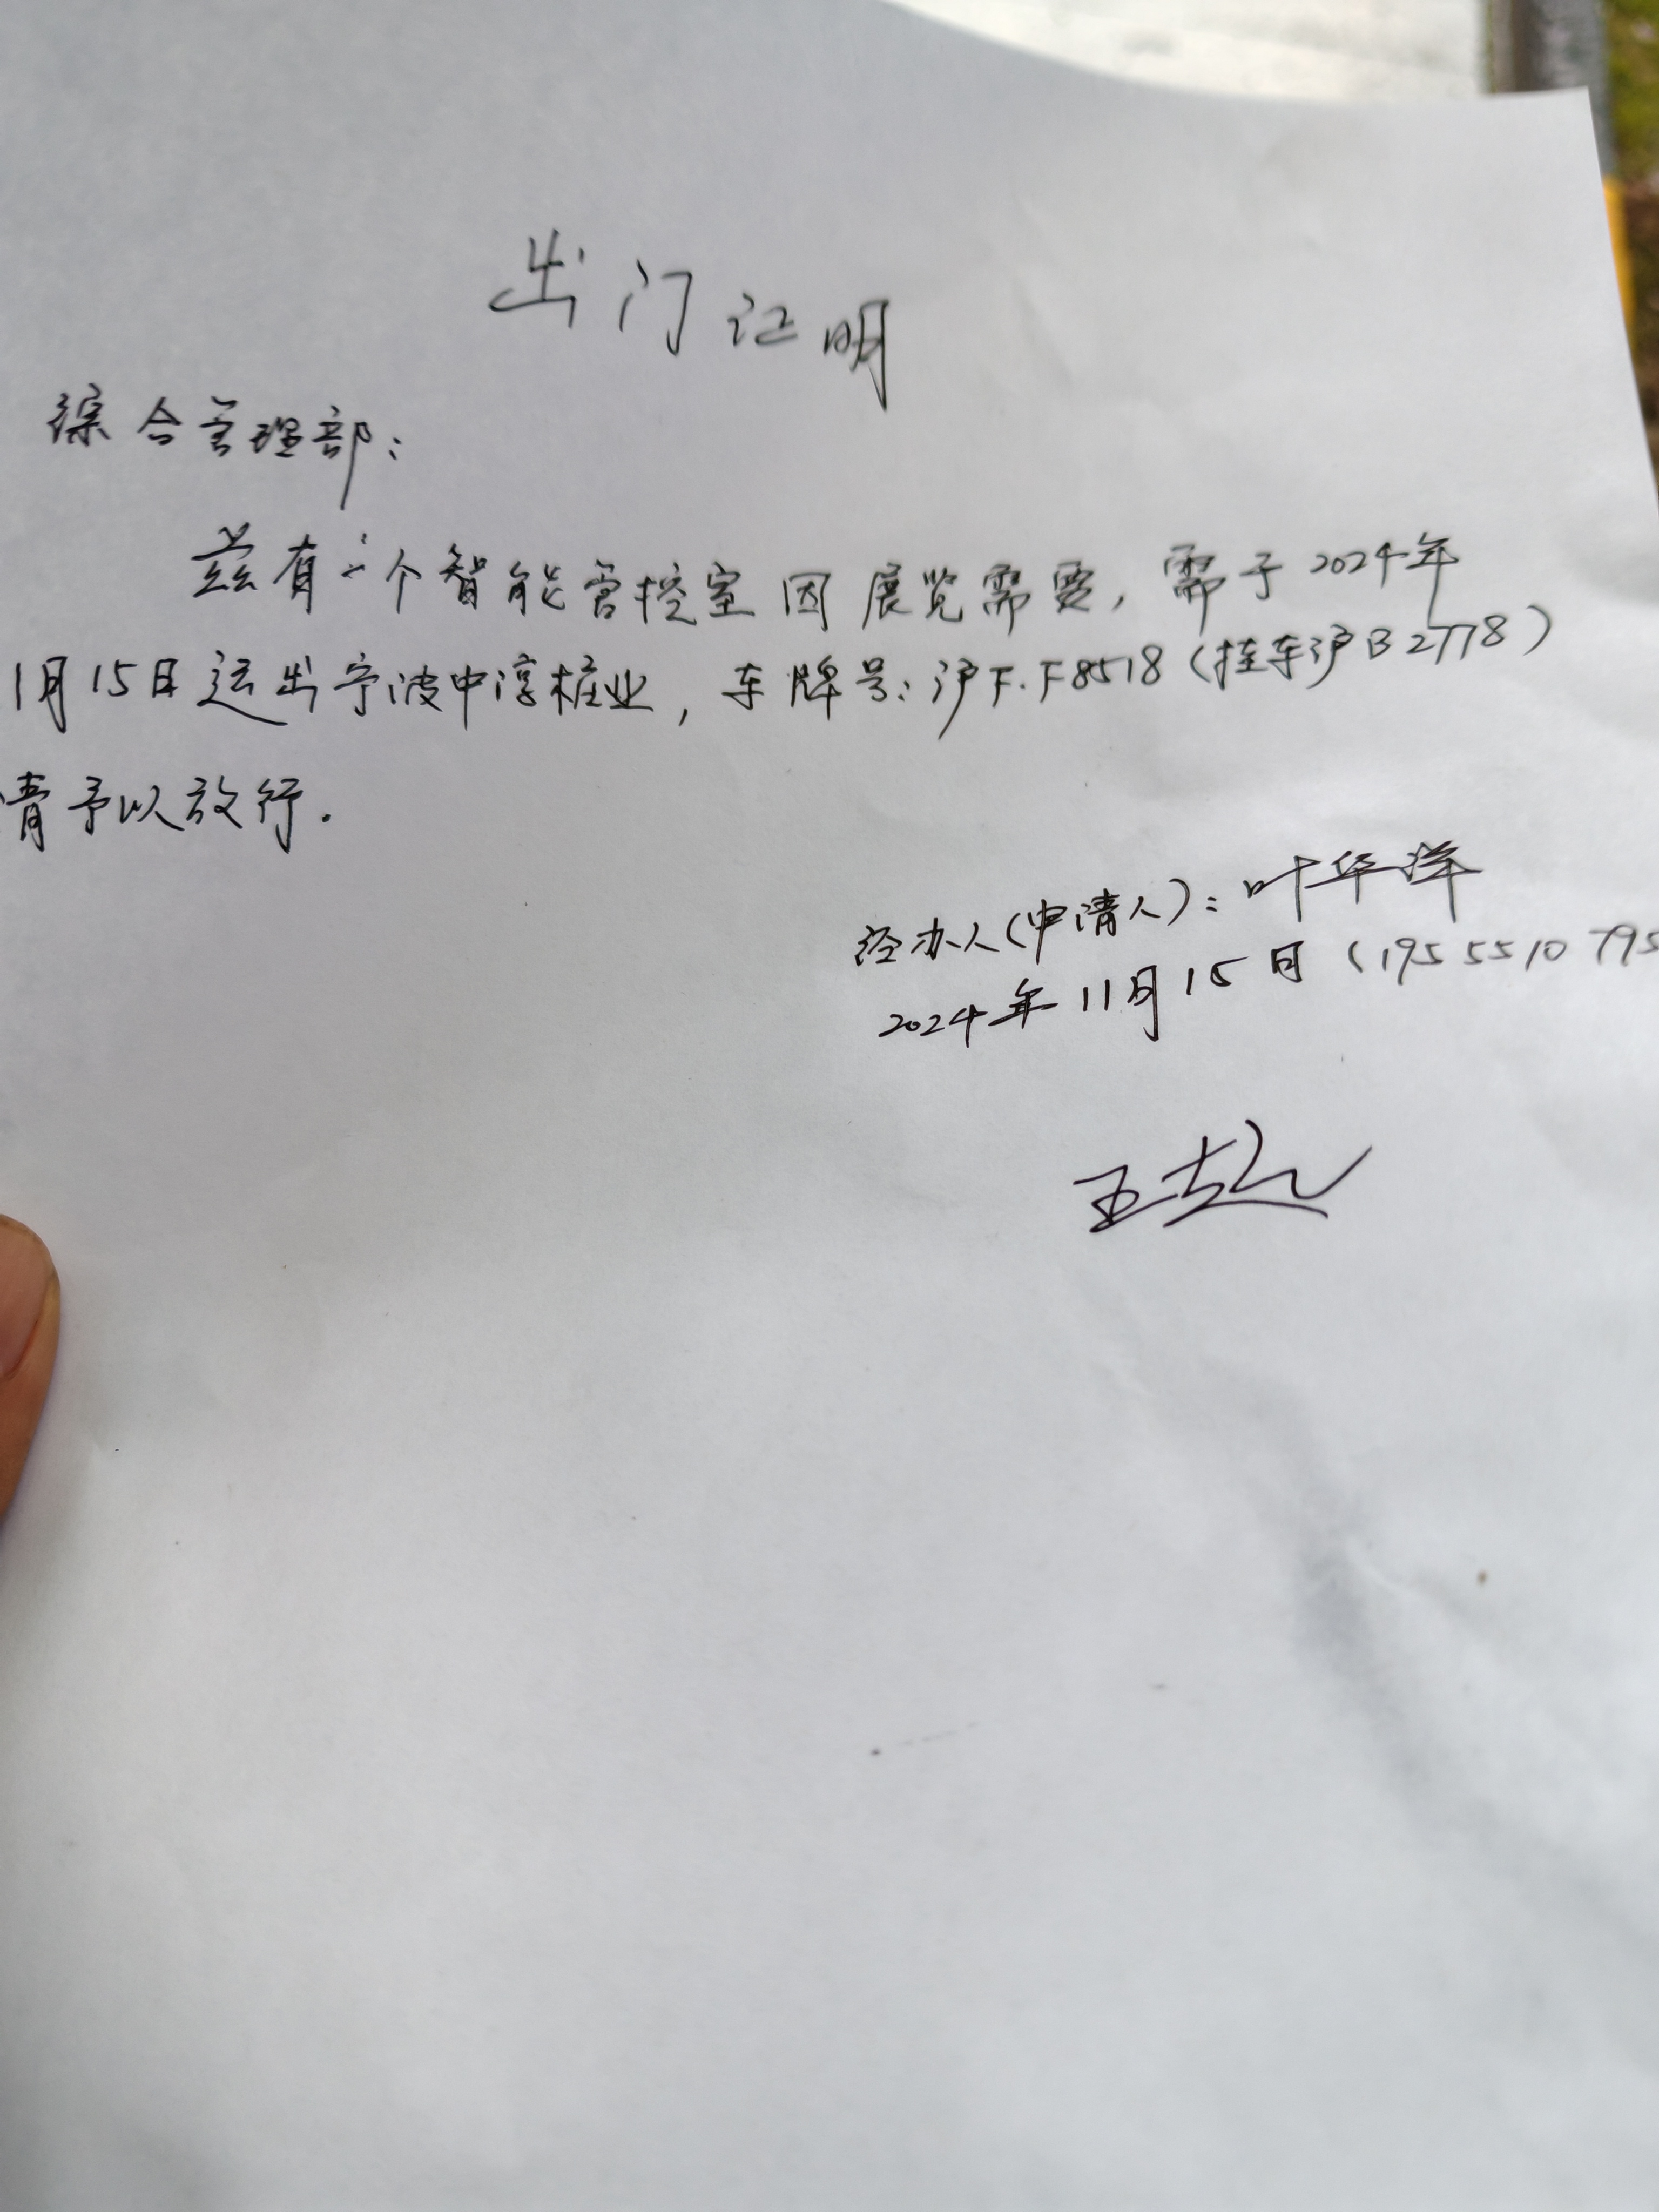 出门证明
综合管理部：
兹有一个智能管控室因展览需要，需于2024年
1月15日运出宁波中淳桩业，车牌号：沪F.F8518（挂车沪B2778）
请予以放行.
经办人（申请人）：叶华洋
2024年11月15日（195 5510 795